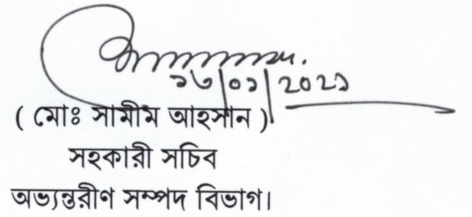 ১৩/০১/২০২১
( মোঃ সামীম আহসান )
সহকারী সচিব
অভ্যন্তরীণ সম্পদ বিভাগ।